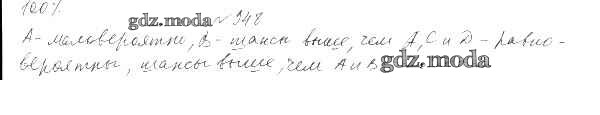 100%
gdz.moda № 948
А - маловероятно, В - шансы выше, чем А, С и D - равно-
вероятны, шансы выше, чем А и В gdz.moda